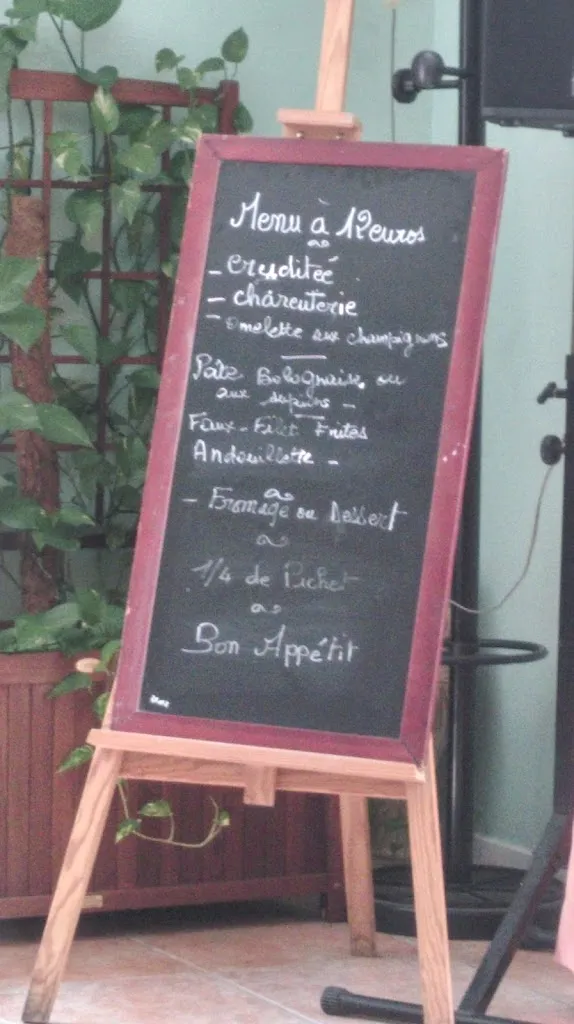 Menu à 12 euros
- crudité
- charcuterie
- omelette aux champignons
Pâte Bolognaise ou
aux supions -
Faux-Filet Frites
Andouillette -
- Fromage ou Dessert
1/4 de Pichet
Bon Appétit